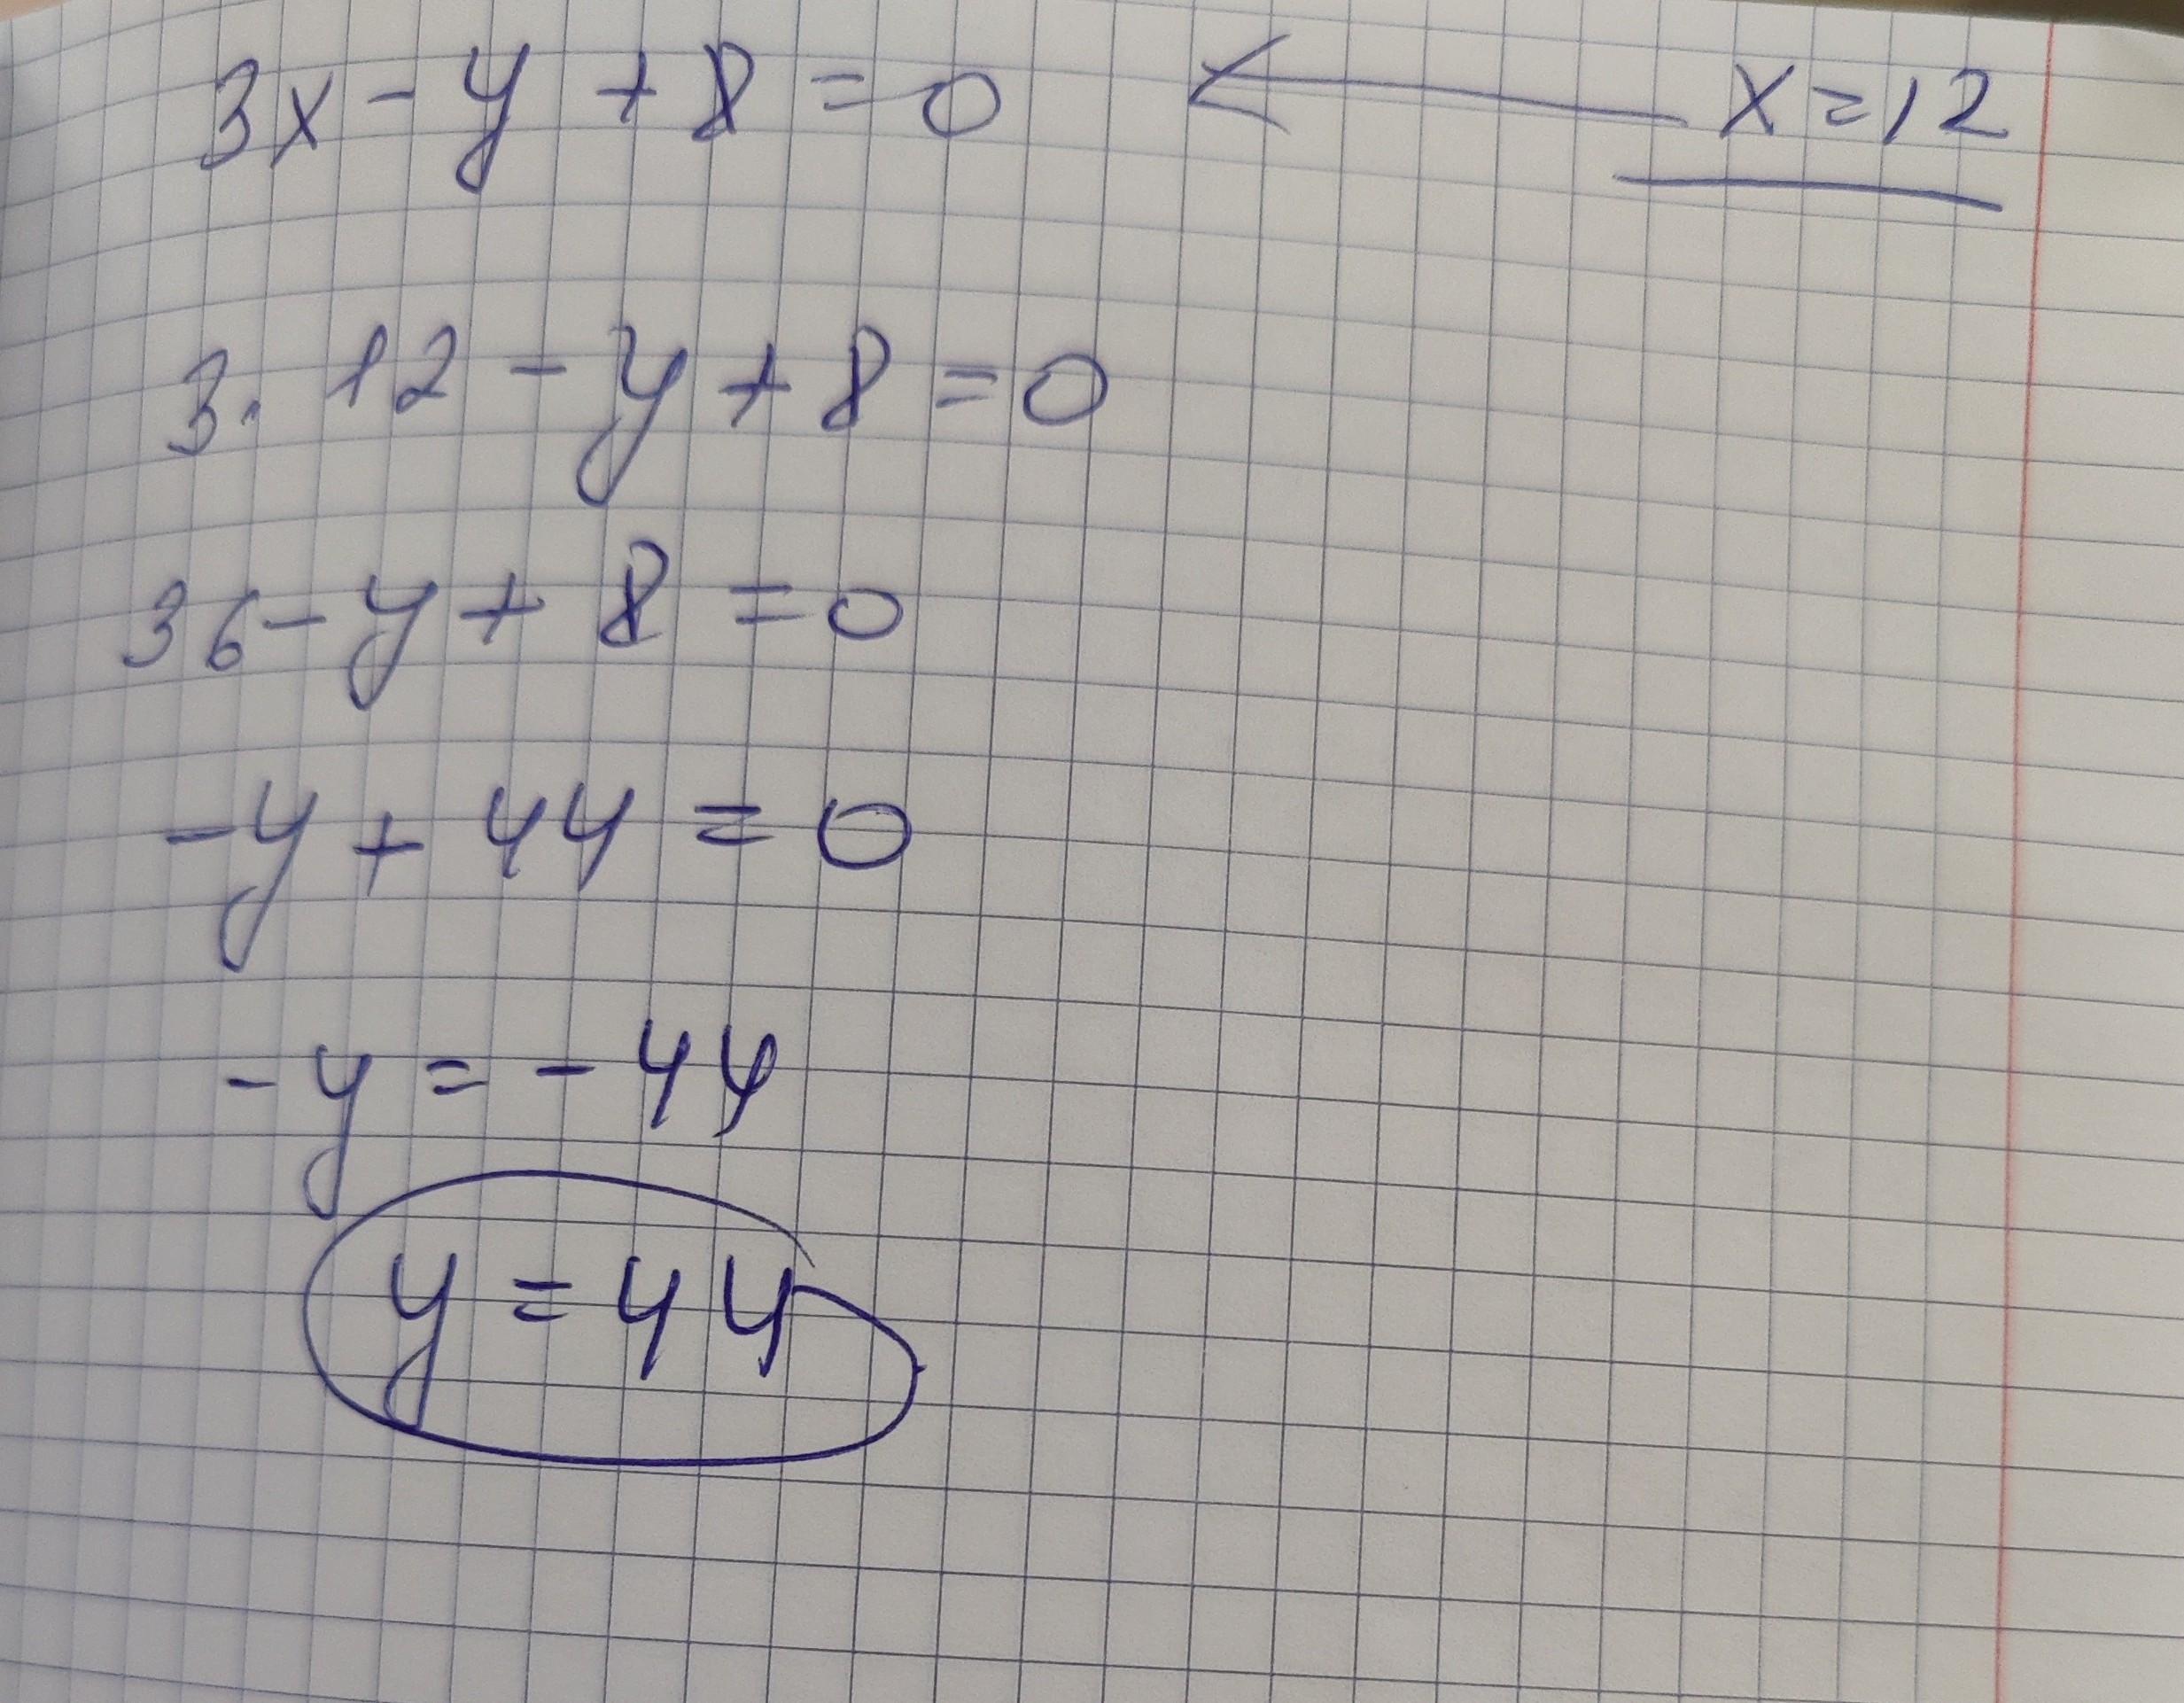 3x - y + 8 = 0 ← x = 12
3 · 12 - y + 8 = 0
36 - y + 8 = 0
-y + 44 = 0
-y = -44
y = 44